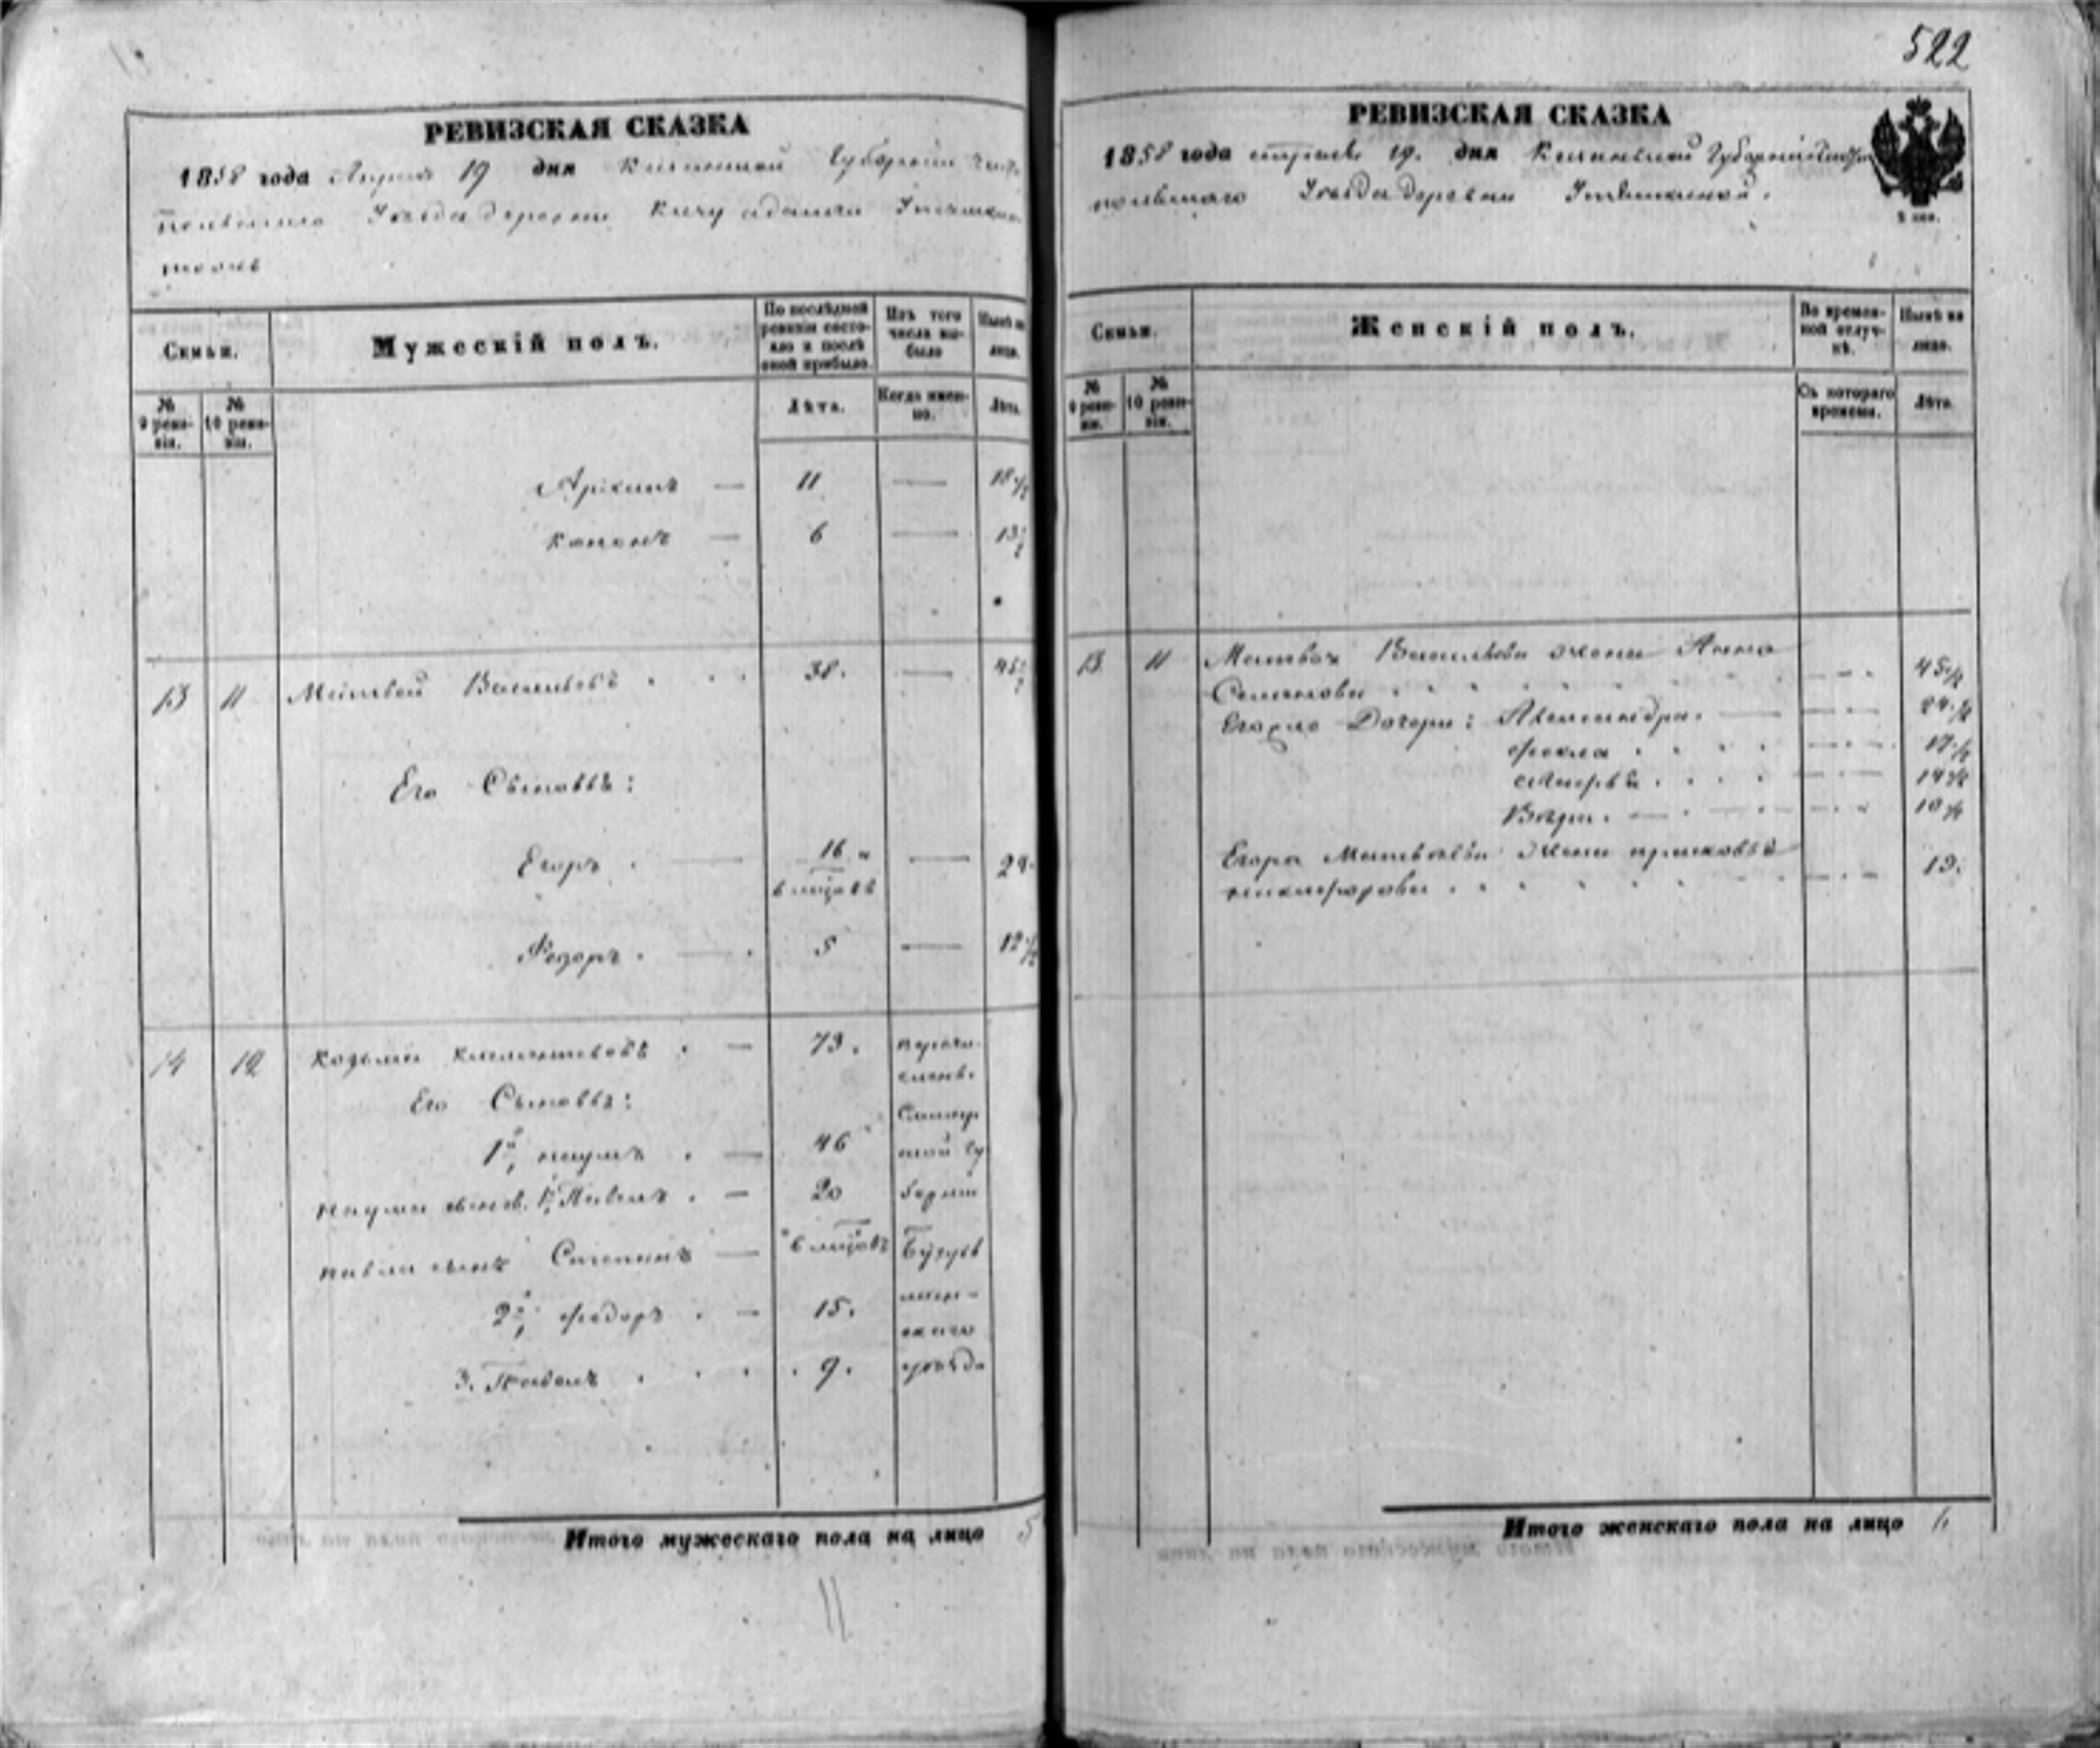 522
РЕВИЗСКАЯ СКАЗКА
1858 года Апреля 19 дня Казанской Губернии Чис
польскаго Уезда деревни
Семьи.
Мужескій полъ.
По послѣдней ревизіи состояло и послѣ оной прибыло.
Изъ того числа выбыло
Нынѣ на лицо.
№ 9 ревизіи.
№ 10 ревизіи.
Лѣта.
Когда именно.
Лѣта.
Архипъ — 11 — 18 1/2
Кононъ — 6 — 13 1/2
13 11 Матвей Васильевъ 38. — 45 1/2
Его Сыновья:
Егоръ 16 — 24
6 мѣсяцовъ
Федоръ 5 — 12 1/2
14 12 Козьма 73. пересе
лены.
Его Сыновья:
Самар
1й, Наумъ 46 ской Гу
Наума сынов. 1, Павелъ 20 берніи
Павла сынъ Степанъ — 6 мѣсяцовъ Бугуль
2й, Федоръ 15. мин-
скаго
3. Павелъ 9. уѣзда
Итого мужескаго пола на лицо 5
11
РЕВИЗСКАЯ СКАЗКА
1858 года Апреля 19. дня Казанской Губерніи Чисто
польскаго Уезда деревни
2 коп.
Семьи.
Женскій полъ.
Во временной отлучкѣ.
Нынѣ на лицо.
№ 9 ревизіи.
№ 10 ревизіи.
Съ котораго времени.
Лѣта.
13 11 Матвея Васильева жена Анна
Семенова 45 1/2
Его же Дочери: Александра. 24 1/2
Фекла 17 1/2
14 1/2
Вѣра. 10 1/2
Егора Матвеева жена Прасковья
Никифорова 19.
Итого женскаго пола на лицо 6